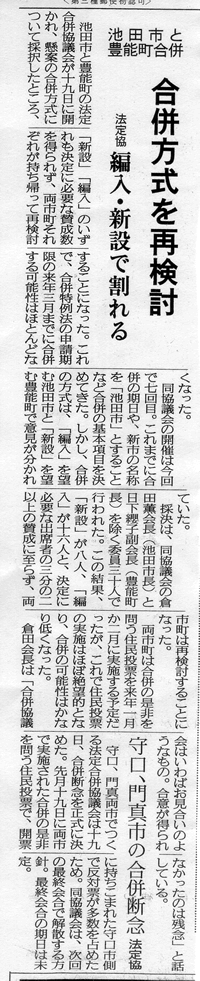 (第三種郵便物認可)
池田市と
豊能町合併
合併方式を再検討
法定協 編入・新設で割れる
池田市と豊能町の法定
合併協議会が十九日に開
かれ、懸案の合併方式に
ついて採択したところ、
「新設」「編入」のいず
れも決定に必要な賛成数
を得られず、両市町それ
ぞれが持ち帰って再検討
することになった。これ
で、合併特例法の申請期
限の来年三月までに合併
する可能性はほとんどな
くなった。
同協議会の開催は今回
で七回目。これまでに合
併の期日や、新市の名称
を「池田市」とすること
など合併の基本項目を決
めてきた。しかし、合併
の方式は、「編入」を望
む池田市と「新設」を望
む豊能町で意見が分かれ
ていた。
採決は、同協議会の倉
田薫会長(池田市長)と
日下纓子副会長(豊能町
長)を除く委員三十人で
行われた。この結果、
「新設」が八人、「編
入」が十六人と、決定に
必要な出席者の三分の二
以上の賛成に至らず、両
市町は再検討することに
なった。
両市町は合併の是非を
問う住民投票を来年一月
か二月に実施する予定だ
ったが、これで住民投票
の実施はほぼ絶望的とな
り、合併の可能性はかな
り低くなった。
倉田会長は「合併協議
会はいわばお見合いのよ
うなもの。合意が得られ
なかったのは残念」と話
している。
守口、門真市の合併断念 法定協
守口、門真両市でつく
る法定合併協議会は十九
日、合併断念を正式に決
めた。先月十九日に両市
で実施された合併の是非
を問う住民投票で、開票
に持ちこまれた守口市側
で反対票が多数を占めた
ため。同協議会は、次回
の最終会合で解散する方
針。最終会合の期日は未
定。